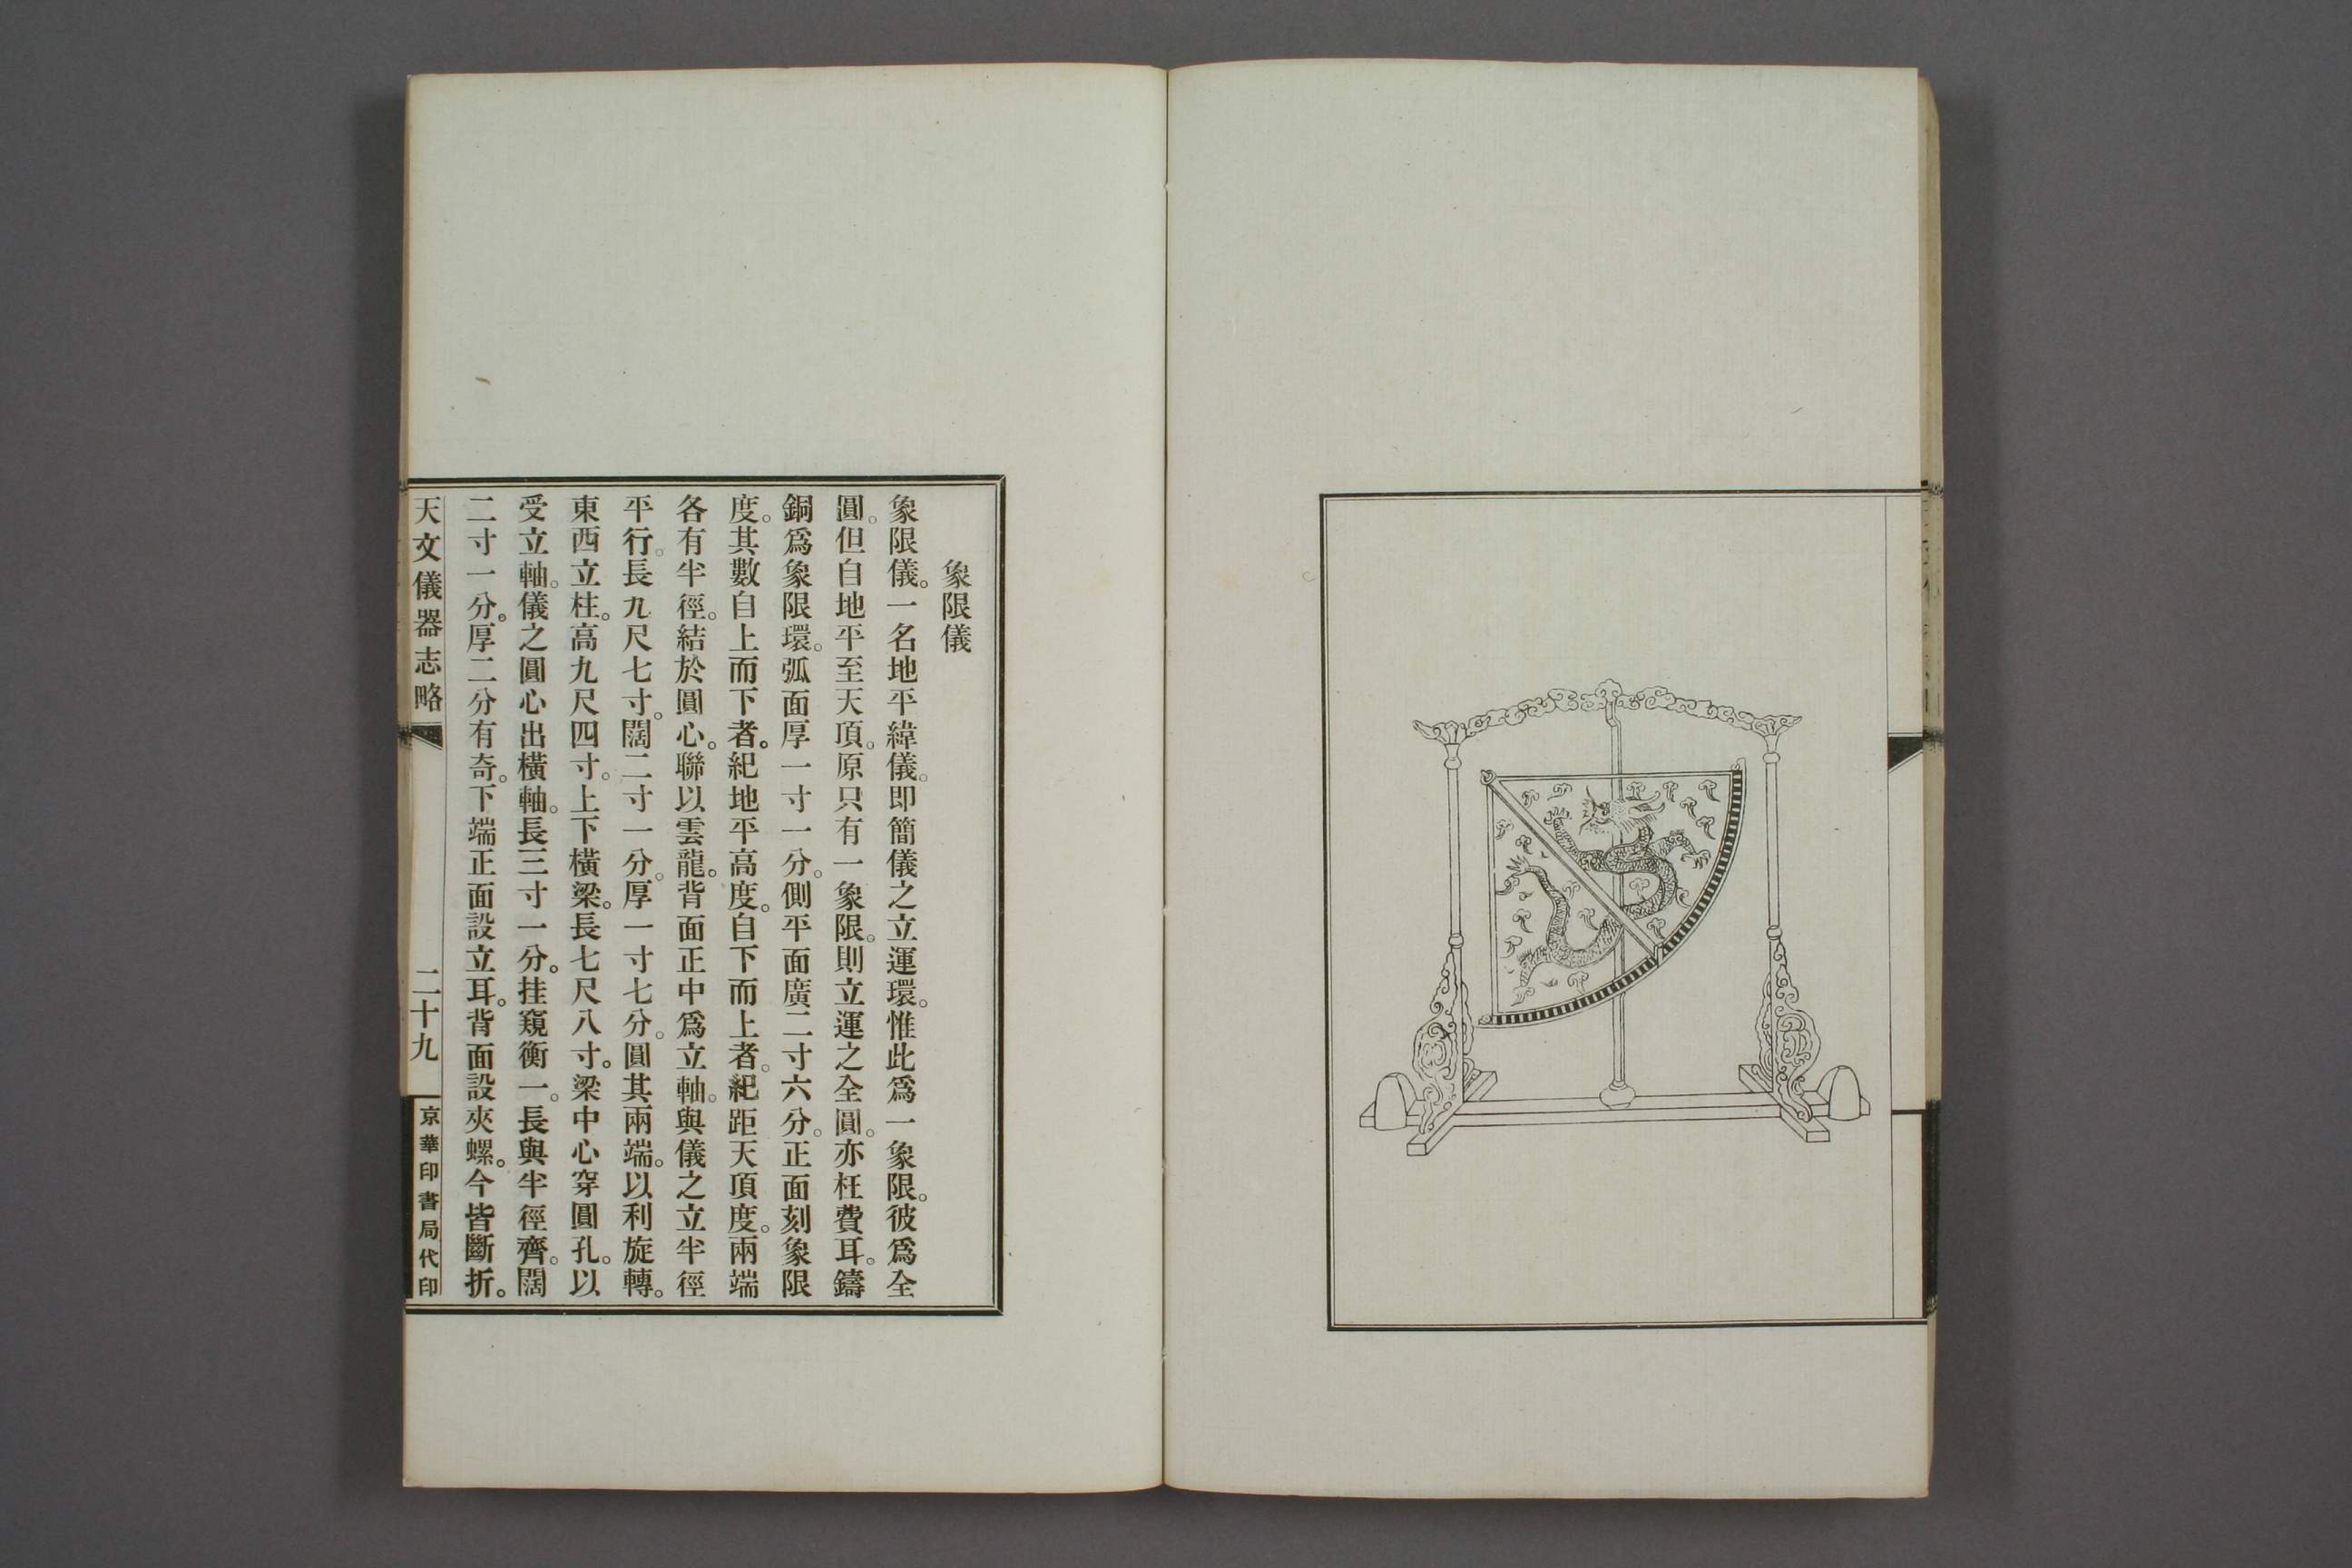 象限儀
象限儀。一名地平緯儀。即簡儀之立運環。惟此爲一象限。彼爲全
圓。但自地平至天頂。原只有一象限。則立運之全圓。亦枉費耳。鑄
銅爲象限環。弧面厚一寸一分。側平面廣二寸六分。正面刻象限
度。其數自上而下者。紀地平高度。自下而上者。紀距天頂度。兩端
各有半徑。結於圓心。聯以雲龍。背面正中爲立軸。與儀之立半徑
平行。長九尺七寸。闊二寸一分。厚一寸七分。圓其兩端。以利旋轉。
東西立柱。高九尺四寸。上下橫梁。長七尺八寸。梁中心穿圓孔。以
受立軸。儀之圓心出橫軸。長三寸一分。挂窺衡一。長與半徑齊。闊
二寸一分。厚二分有奇。下端正面設立耳。背面設夾螺。今皆斷折。
天文儀器志略
二十九
京華印書局代印